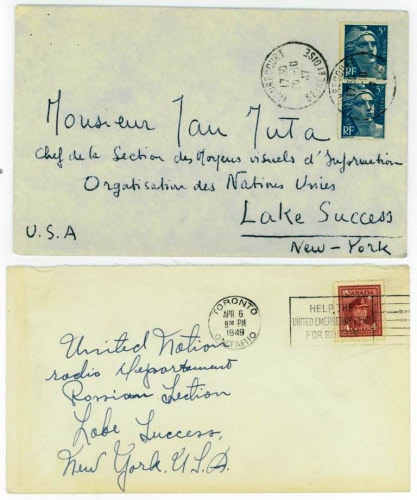 5F
RF
5F
RF
17 30
47
SEINE ET OISE
Monsieur Jan Juta
Chef de la Section des Moyens visuels d'Information
Organisation des Nations Unies
Lake Success
U.S.A
New-York
TORONTO
APR 6
8 30 PM
1949
ONTARIO
HELP THE
UNITED EMERGENCY
FOR
CANADA
4
United Nation
radio Departament
Rossian Section
Lake Success,
New York. U.S.A.